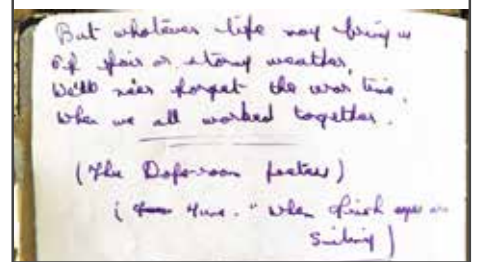 But whatever life may bring us
Of fair or stormy weather,
We'll ne'er forget the war time,
When we all worked together.
(The Dope-room
( Tune. "When Irish eyes are
Smiling)